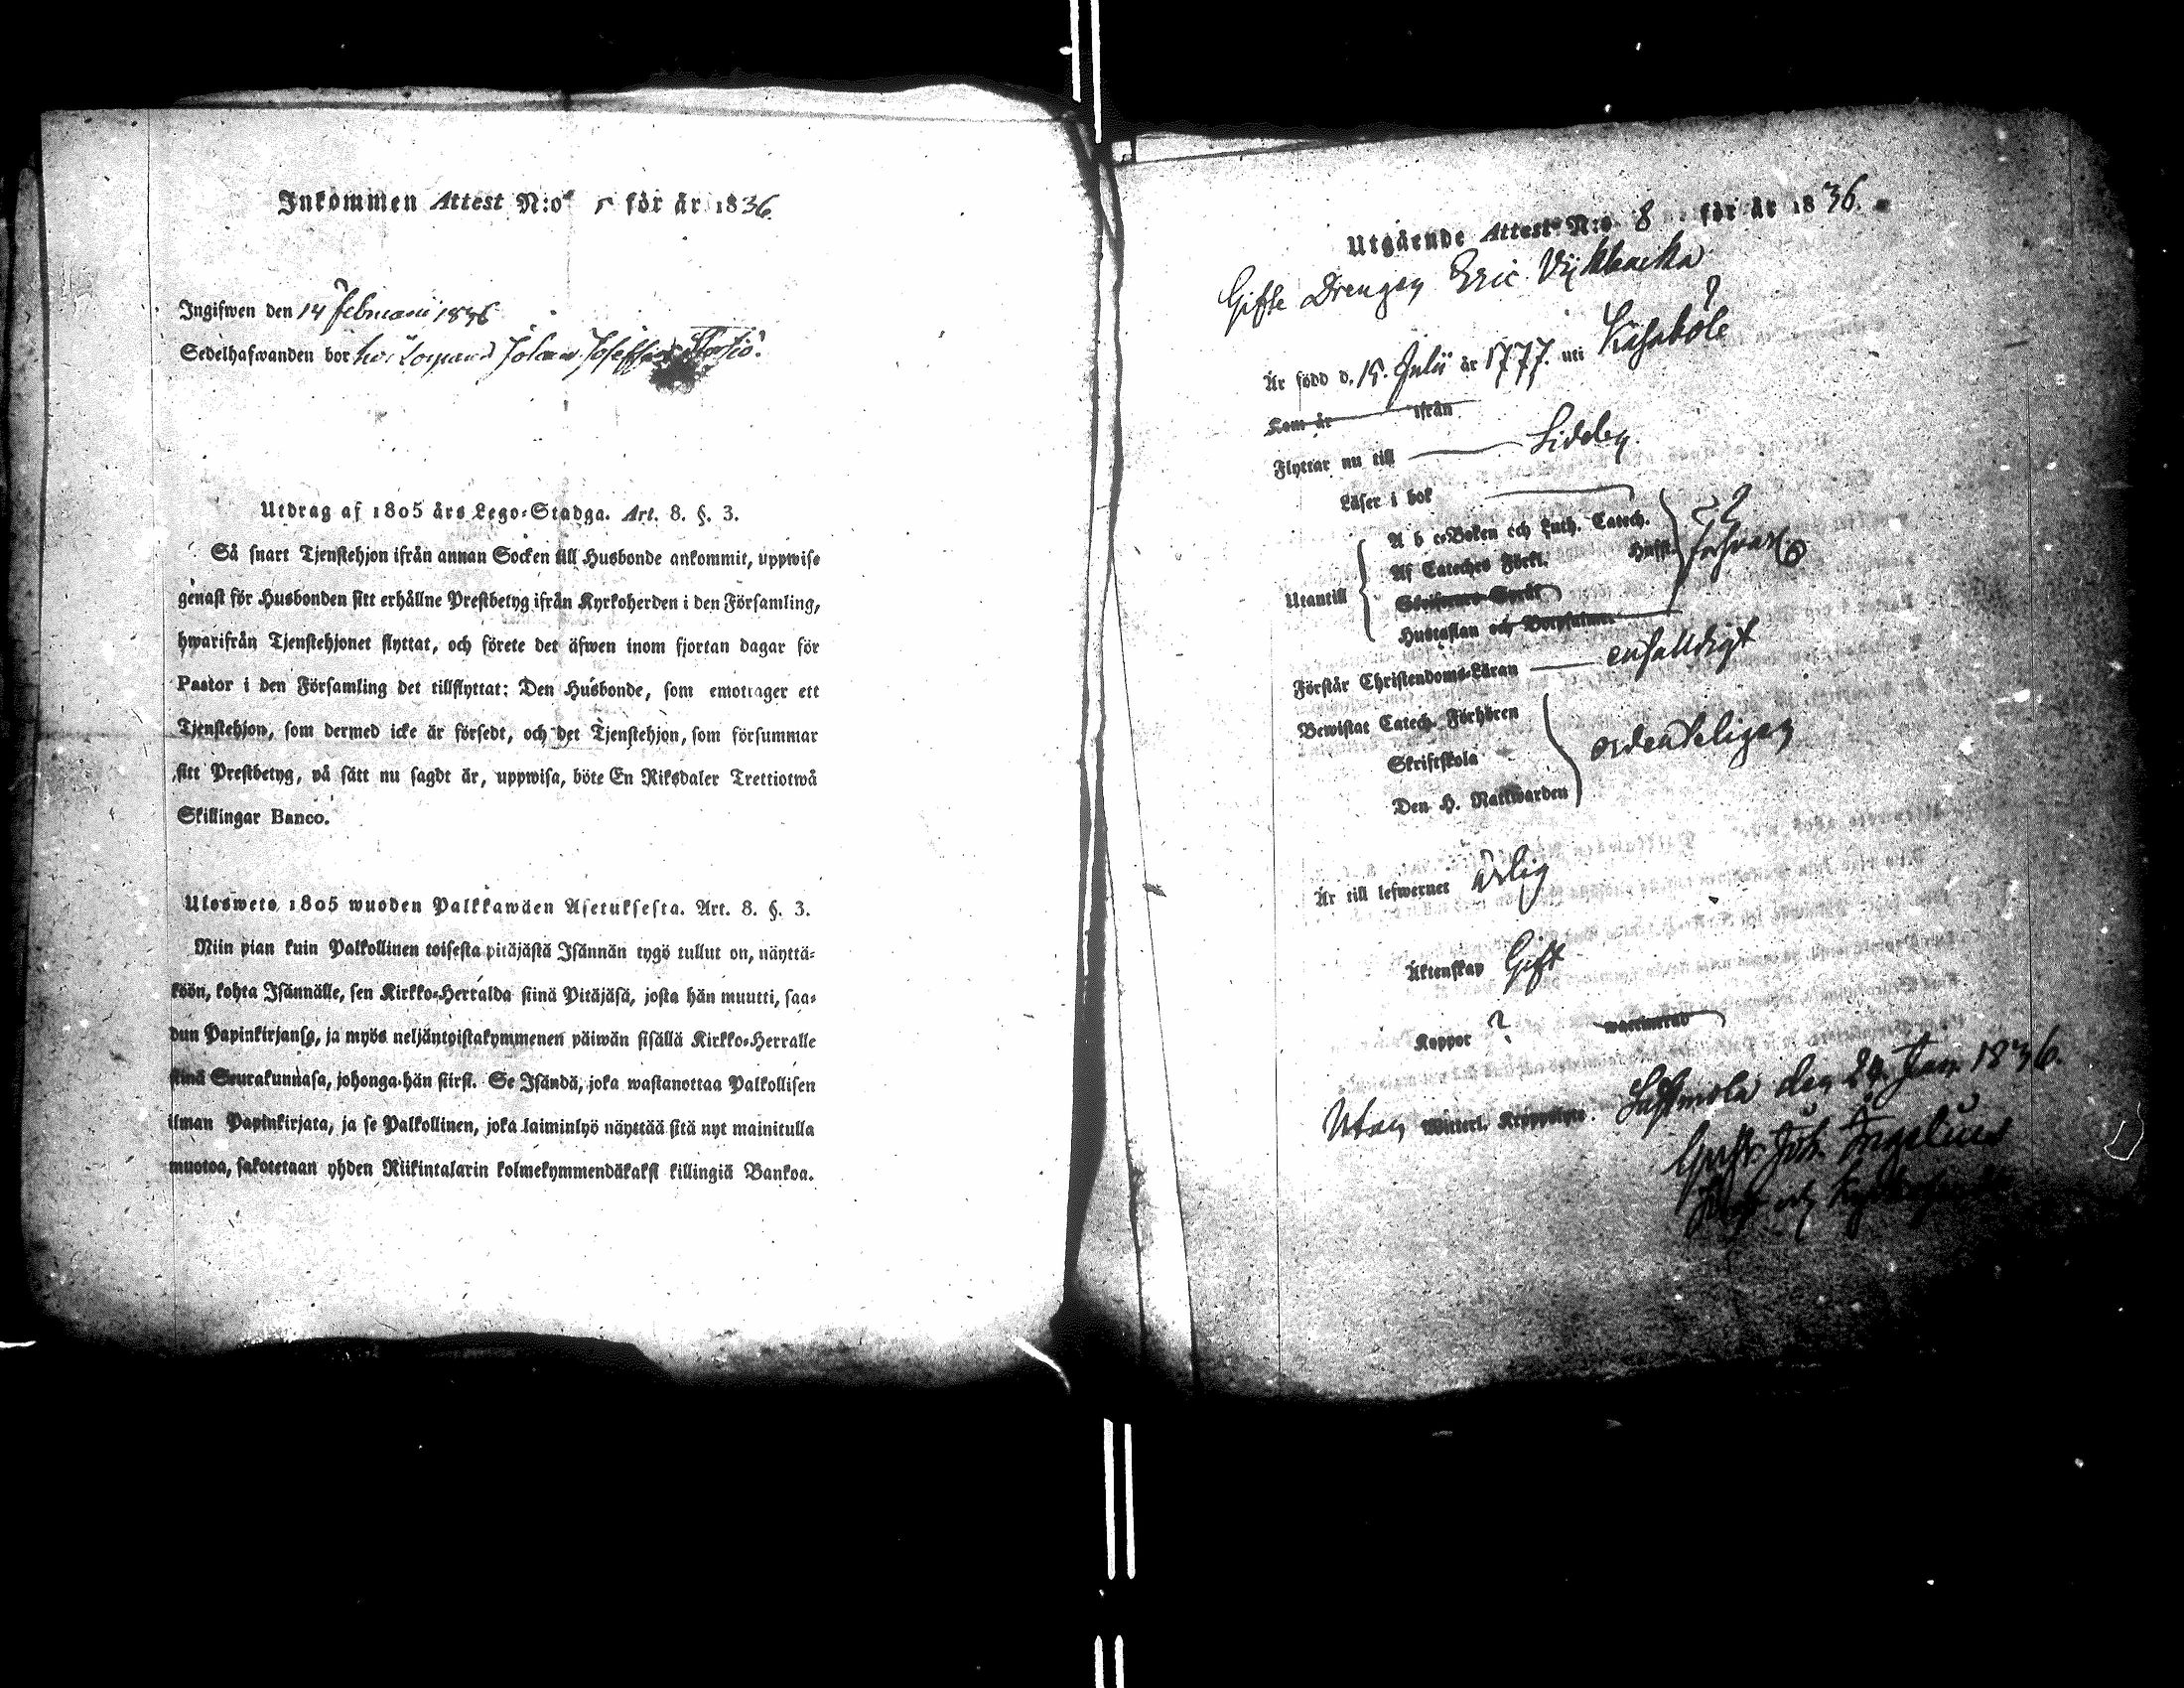 Inkommen Attest N:o 5 för år 1836.
Ingifwen den 14 Februarii 1836
Sedelhafwanden bor hos Johan Josefsson
Utdrag af 1805 års Lego-Stadga. Art. 8. §. 3.
Så snart Tjenstehjon ifrån annan Socken till Husbonde ankommit, uppwise
genast för Husbonden sitt erhållne Prestbetyg ifrån Kyrkoherden i den Församling,
hwarifrån Tjenstehjonet flyttat, och förete det äfwen inom fjortan dagar för
Pastor i den Församling det tillflyttat: Den Husbonde, som emottager ett
Tjenstehjon, som dermed icke är försedt, och det Tjenstehjon, som försummar
sitt Prestbetyg, på sätt nu sagdt är, uppwisa, böte En Riksdaler Trettiotwå
Skillingar Banco.
Ulosweto 1805 wuoden Palkkawäen Asetuksesta. Art. 8. §. 3.
Niin pian kuin Palkollinen toisesta pitäjästä Isännän tygö tullut on, näyttä-
köön, kohta Isännälle, sen Kirkko-Herralda siinä Pitäjäsä, josta hän muutti, saa-
dun Papinkirjansa, ja myös neljäntoistakymmenen päiwän sisällä Kirkko-Herralle
siinä Seurakunnasa, johonga hän siirsi. Se Isändä, joka wastanottaa Palkollisen
ilman Papinkirjata, ja se Palkollinen, joka laiminlyö näyttää sitä nyt mainitulla
muotoa, sakotetaan yhden Riikintalarin kolmekymmendäkaksi killingiä Bankoa.
Utgående Attest N:o 8 för år 1836.
Gifte Drengen Eric Vikbacka
Är född d. 15. Julii år 1777. uti Kasaböle
Kom år ifrån
Flyttar nu till Sideby.
Läser i bok
Utantill
A b c-Boken och Luth. Catech.
Af Cateches Förkl. Hufst. försvarl
Skriftenes Språk
Hustaflan och Botpsalmer
Förstår Christendoms-Läran enfalldigt
Bewistat Catech. Förhören
Skriftskola ordenteligen
Den H. Nattwarden
Är till lefwernet ärlig
Äktenskap Gift
Koppor ? waccinerad
Utan Witterl. Krypplyte. Lappfjerd den 24 Jan. 1836.
Gust. Joh. Ångelius